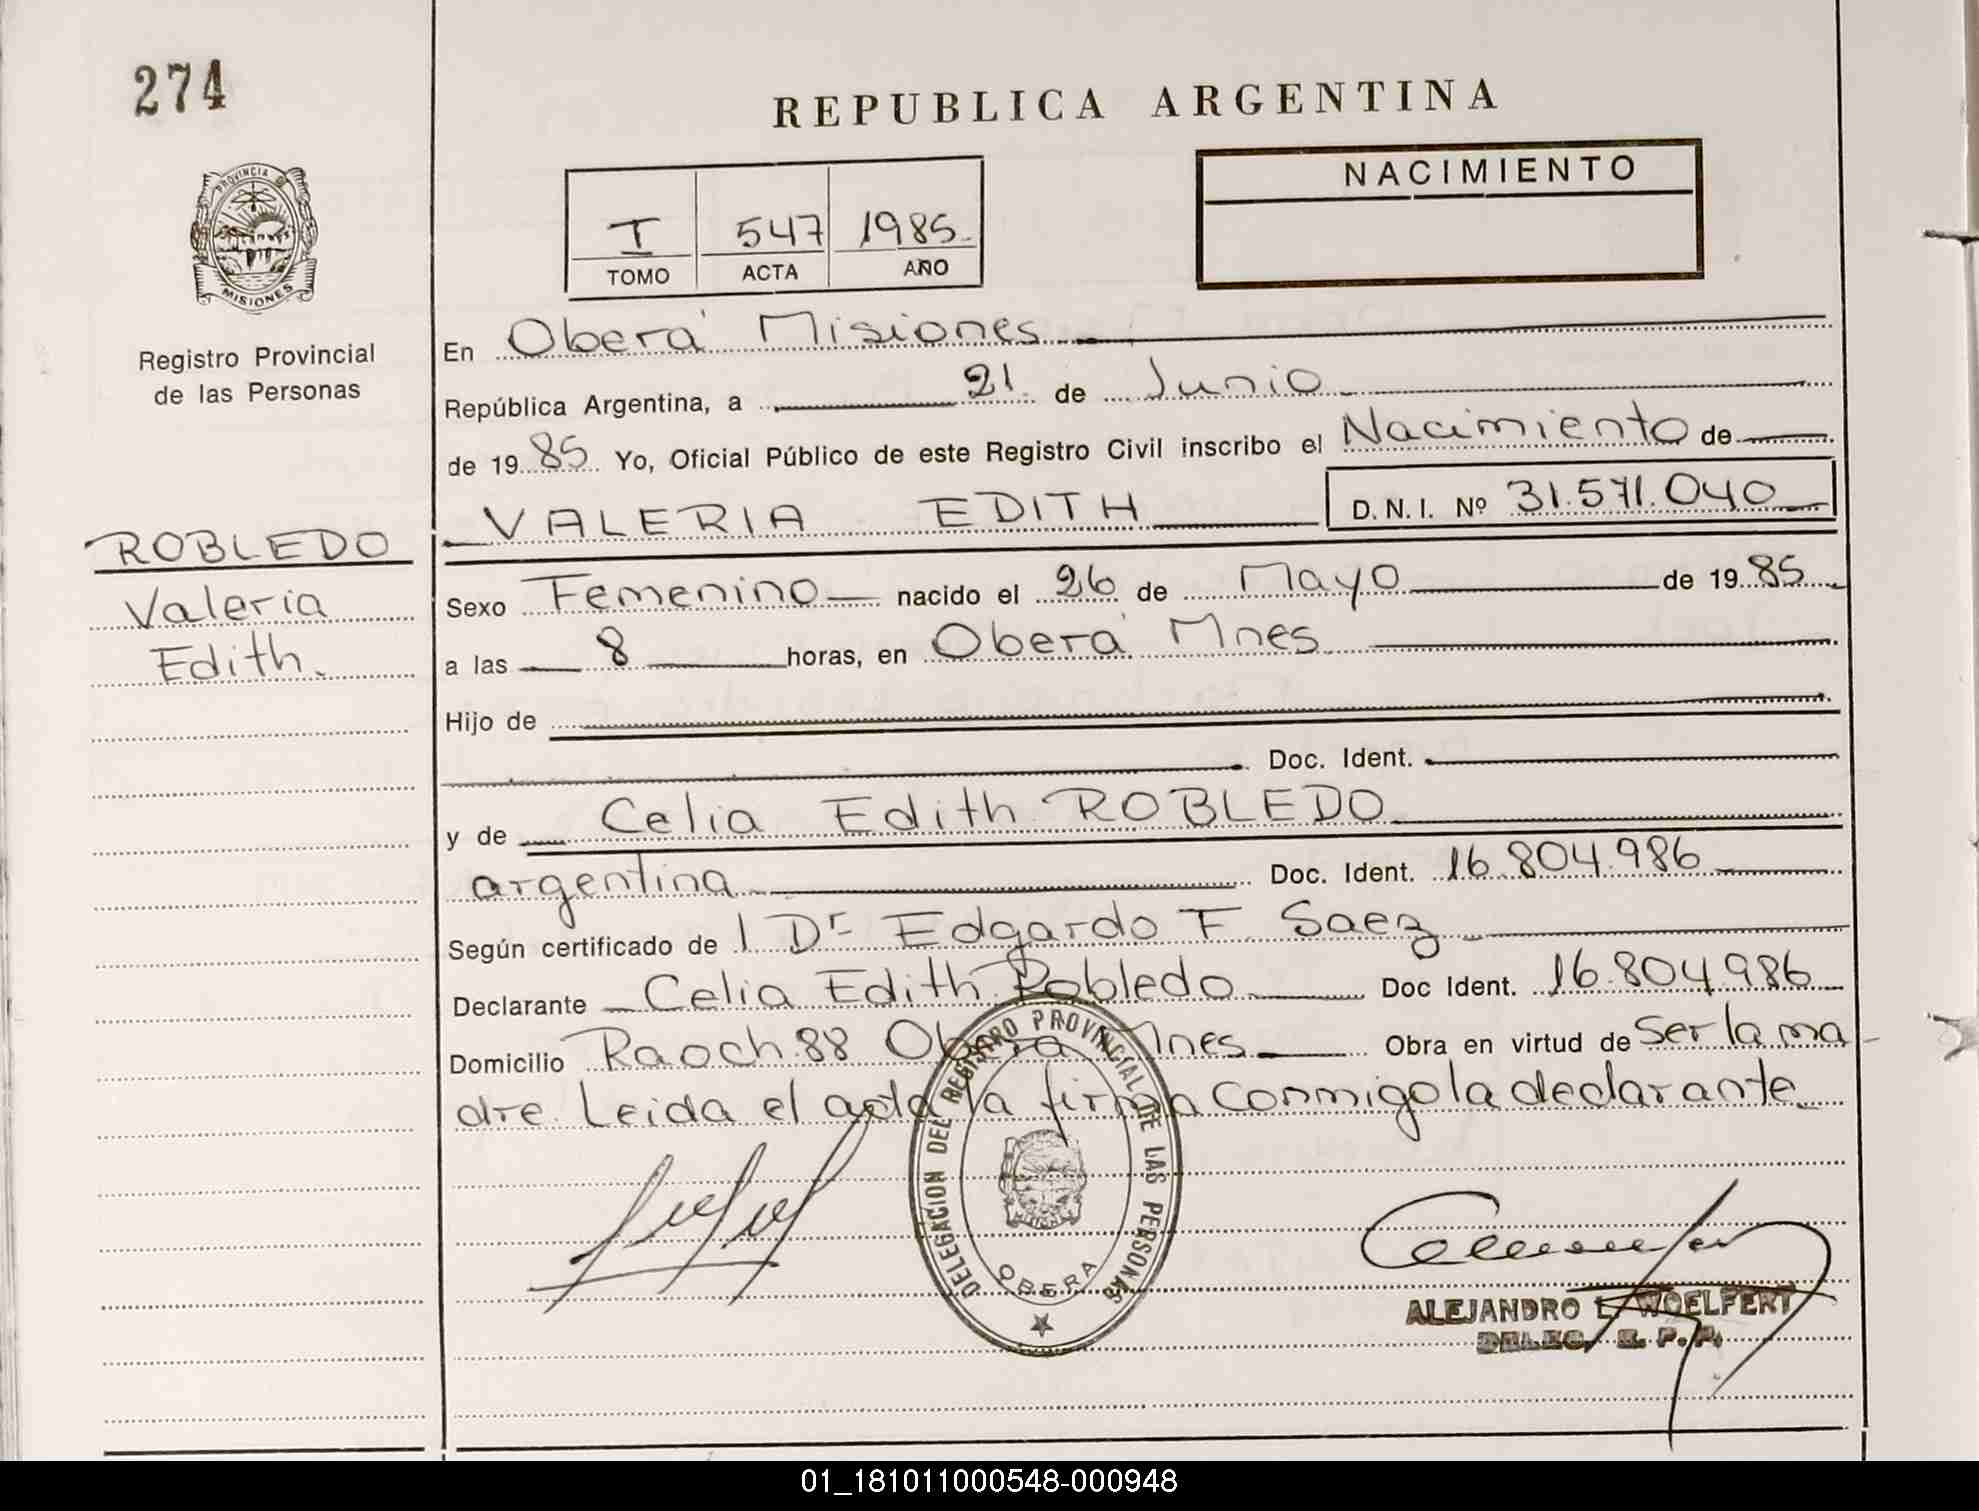 274
REPUBLICA ARGENTINA
PROVINCIA DE
MISIONES
Registro Provincial
de las Personas
I 547 1985
TOMO ACTA AÑO
NACIMIENTO
En Oberá Misiones
República Argentina, a 21 de Junio
de 1985 Yo, Oficial Público de este Registro Civil inscribo el Nacimiento de
VALERIA EDITH D.N.I. Nº 31.571.040
ROBLEDO
Valeria
Edith.
Sexo Femenino nacido el 26 de Mayo de 1985
a las 8 horas, en Oberá Mnes
Hijo de
Doc. Ident.
y de Celia Edith ROBLEDO
argentina Doc. Ident. 16.804.986
Según certificado de l Dr Edgardo F. Saez
Declarante Celia Edith Robledo Doc Ident. 16.804.986
Domicilio Raoch 88 Oberá Mnes Obra en virtud de Ser la ma
dre. Leida el acta la firma conmigo la declarante
DELEGACION DEL REGISTRO PROVINCIAL DE LAS PERSONAS
OBERA
ALEJANDRO L. WOELFERT
DELEG. R. P. P.
01_181011000548-000948